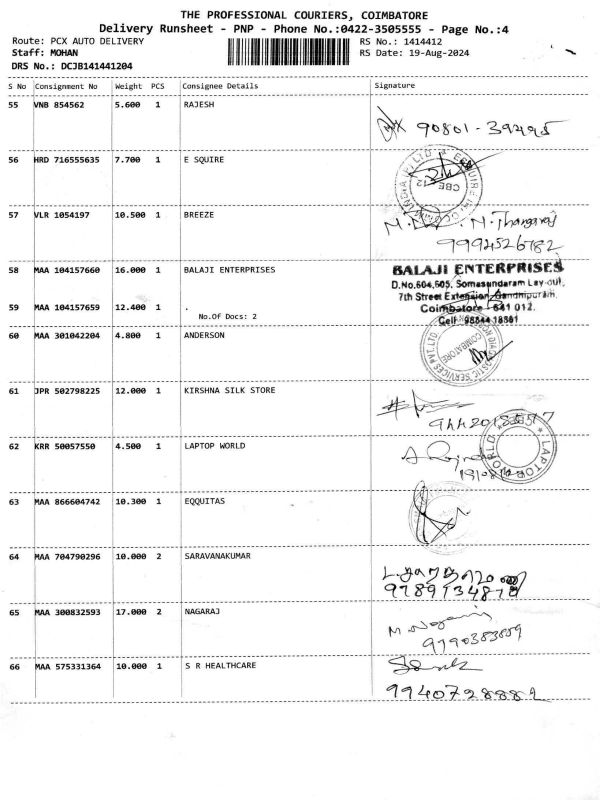 THE PROFESSIONAL COURIERS, COIMBATORE
Delivery Runsheet - PNP - Phone No.:0422-3505555 - Page No.:4
Route: PCX AUTO DELIVERY RS No.: 1414412
Staff: MOHAN RS Date: 19-Aug-2024
DRS No.: DCJB141441204
S No Consignment No Weight PCS Consignee Details Signature
55 VNB 854562 5.600 1 RAJESH
90801-39495
56 HRD 716555635 7.700 1 E SQUIRE
CBE-12
57 VLR 1054197 10.500 1 BREEZE
N. Thangaraj
9994526782
58 MAA 104157660 16.000 1 BALAJI ENTERPRISES
BALAJI ENTERPRISES
D.No.604,605, Somasundaram Lay-out,
7th Street Extension, Gandhipuram,
59 MAA 104157659 12.400 1 .
Coimbatore - 641 012.
No.Of Docs: 2
Cell: 98844 18861
60 MAA 301042204 4.800 1 ANDERSON
COIMBATORE
61 JPR 502798225 12.000 1 KIRSHNA SILK STORE
62 KRR 50057550 4.500 1 LAPTOP WORLD
LAPTOP WORLD
63 MAA 866604742 10.300 1 EQQUITAS
64 MAA 704790296 10.000 2 SARAVANAKUMAR
9789134878
65 MAA 300832593 17.000 2 NAGARAJ
M. Nagaraj
9790383809
66 MAA 575331364 10.000 1 S R HEALTHCARE
9940728882